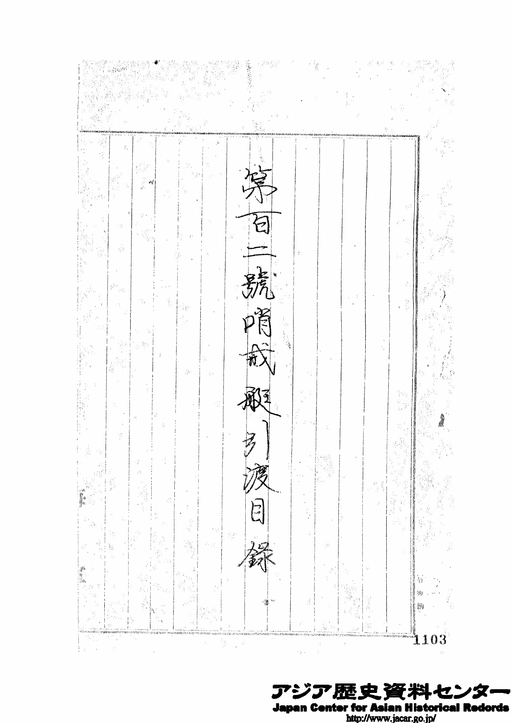 第百二號哨戒艇引渡目錄
1103
アジア歴史資料センター
Japan Center for Asian Historical Records
http://www.jacar.go.jp/